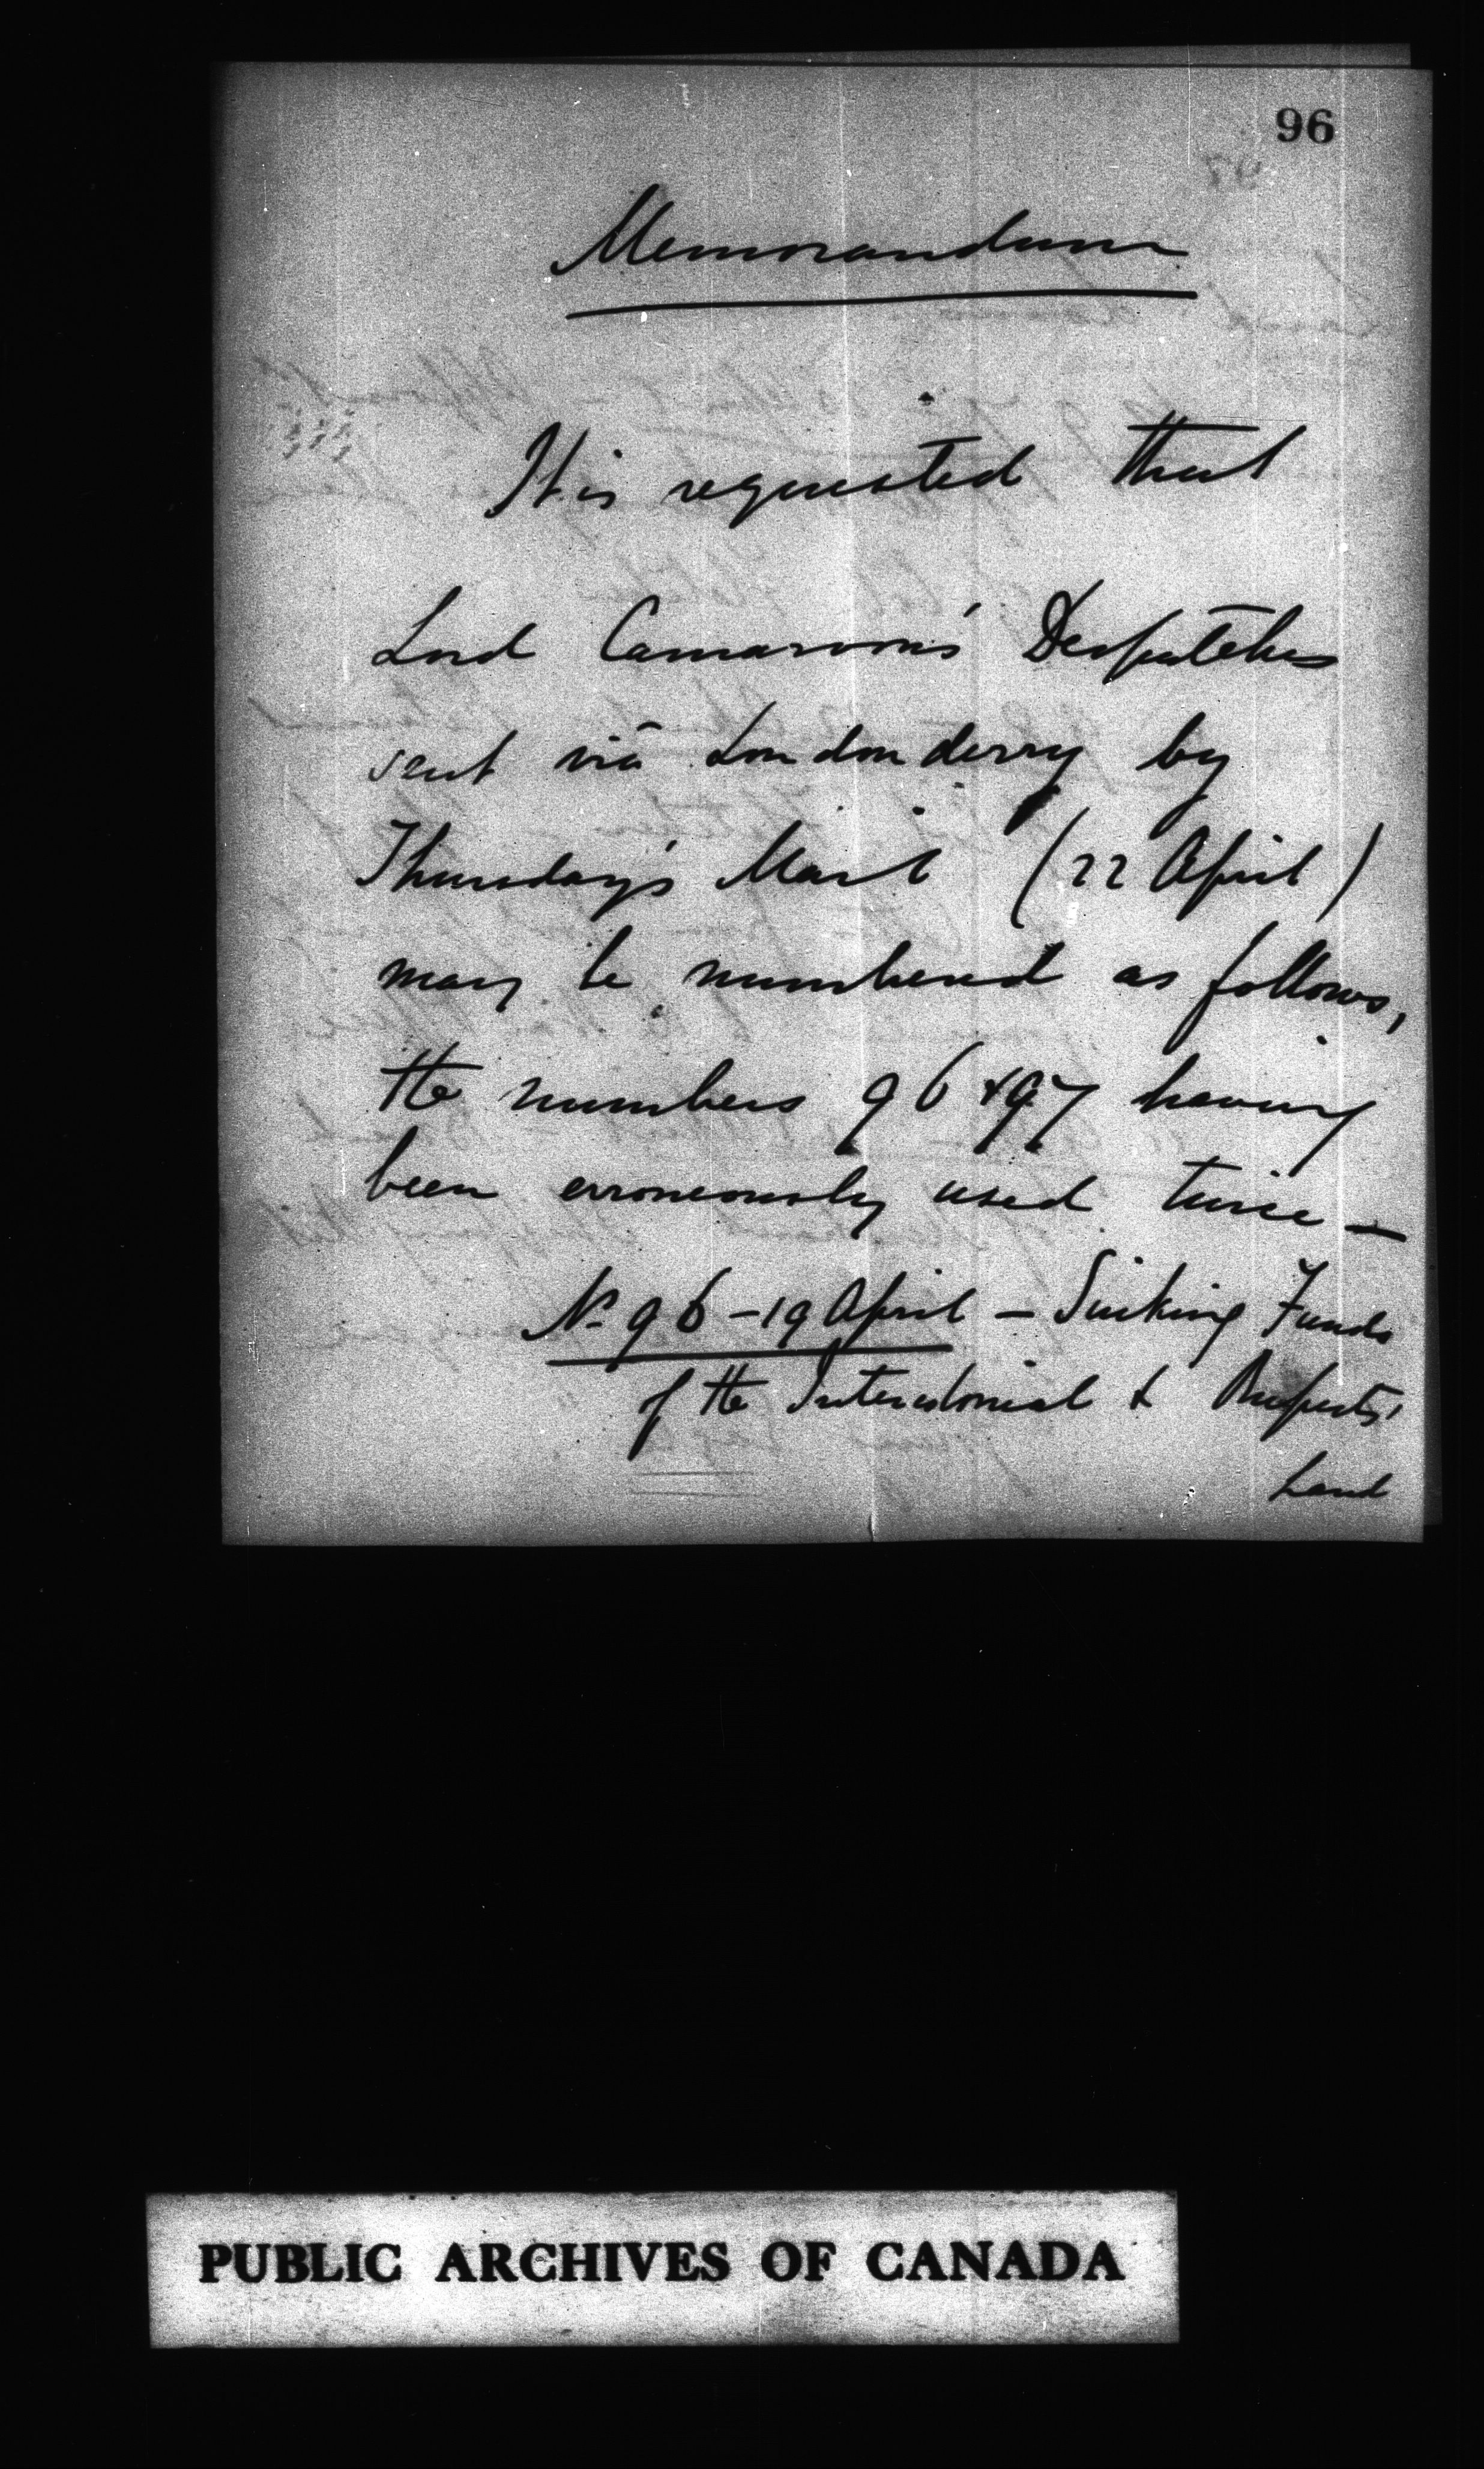 96
Memorandum
It is requested that
Lord Carnarvon's Despatches
sent viâ Londonderry by
Thursday's Mail (22 April)
may be numbered as follows,
the numbers 96 & 97 having
been erroneously used twice —
No 96 - 19 April — Sinking Funds
of the Intercolonial & Ruperts'
Land
PUBLIC ARCHIVES OF CANADA